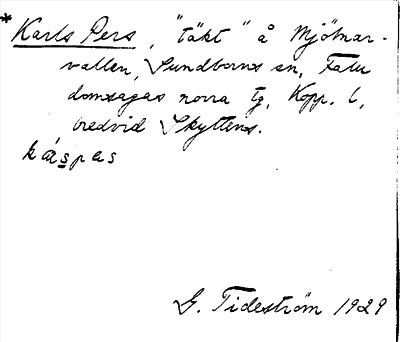 *Karls Pers, "täkt" å Mjölnar-
vallen, Sundborns sn, Falu
domsagas norra tg, Kopp. l,
bredvid Skyttens.
káspas
G. Tideström 1929